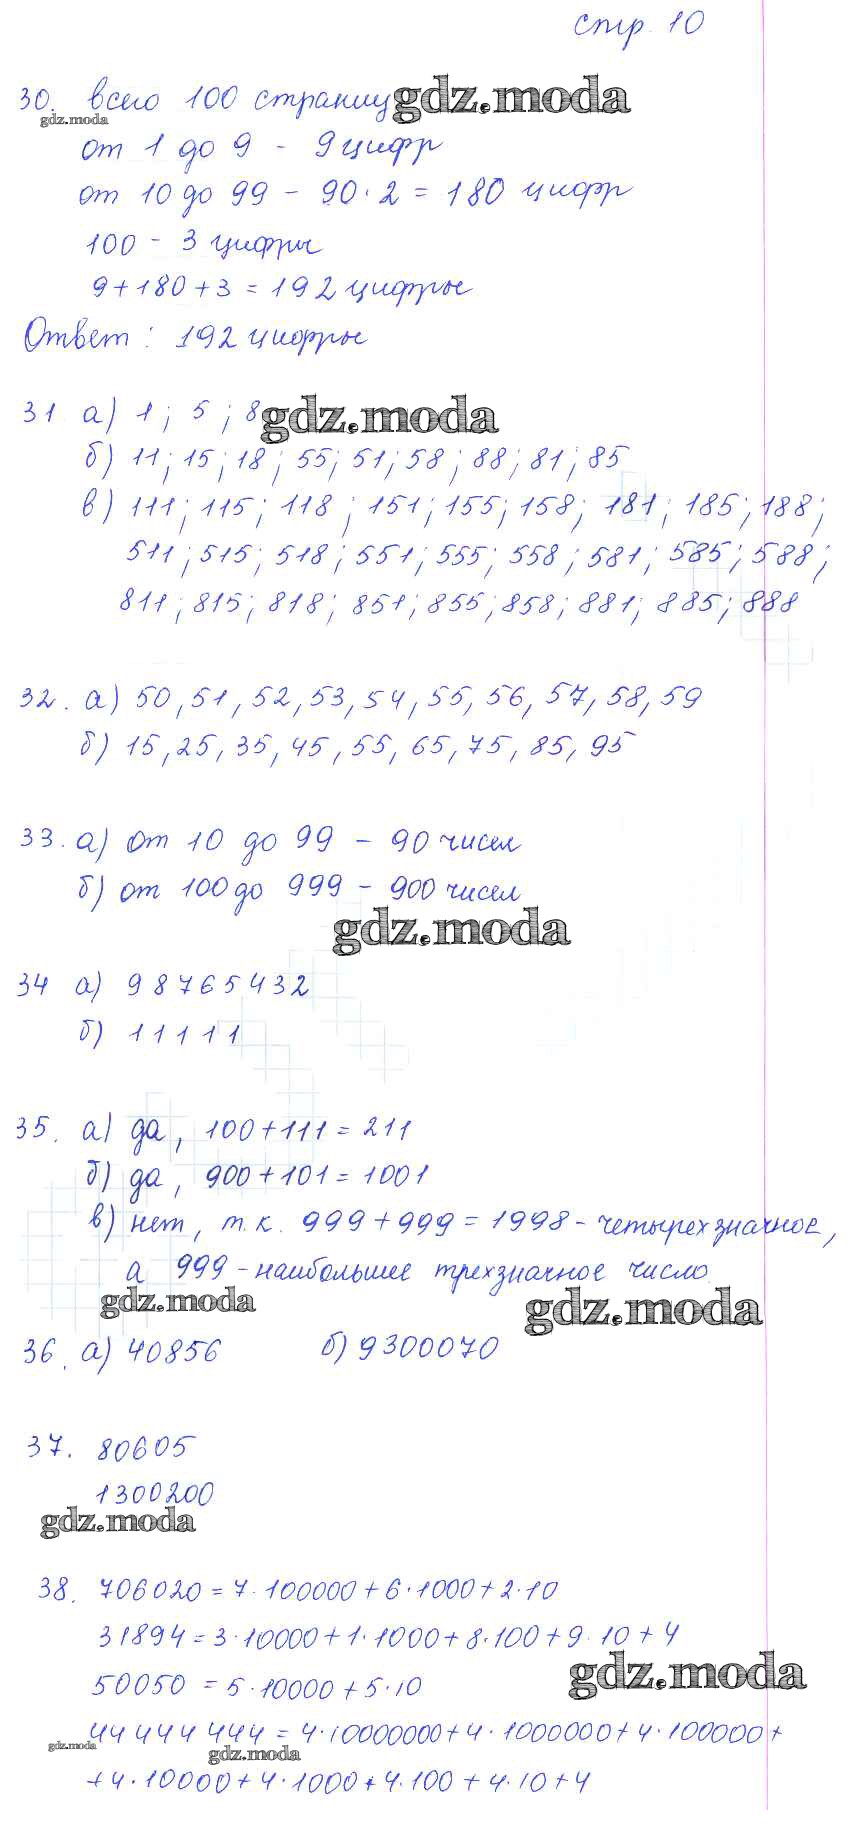 стр. 10
30. всего 100 страниц gdz.moda
gdz.moda
от 1 до 9 - 9 цифр
от 10 до 99 - 90·2 = 180 цифр
100 - 3 цифры
9+180+3 = 192 цифры
Ответ: 192 цифры
31 а) 1; 5; 8 gdz.moda
б) 11; 15; 18; 55; 51; 58; 88; 81; 85
в) 111; 115; 118; 151; 155; 158; 181; 185; 188;
511; 515; 518; 551; 555; 558; 581; 585; 588;
811; 815; 818; 851; 855; 858; 881; 885; 888
32. а) 50, 51, 52, 53, 54, 55, 56, 57, 58, 59
б) 15, 25, 35, 45, 55, 65, 75, 85, 95
33. а) от 10 до 99 - 90 чисел
б) от 100 до 999 - 900 чисел
gdz.moda
34 а) 98765432
б) 11111
35. а) да, 100+111 = 211
б) да, 900+101 = 1001
в) нет, т.к. 999+999 = 1998 - четырехзначное,
а 999 - наибольшее трехзначное число.
gdz.moda gdz.moda
36. а) 40856 б) 9300070
37. 80605
1300200
gdz.moda
38. 706020 = 7·100000 + 6·1000 + 2·10
31894 = 3·10000 + 1·1000 + 8·100 + 9·10 + 4
gdz.moda
50050 = 5·10000 + 5·10
44 444 444 = 4·10000000 + 4·1000000 + 4·100000 +
gdz.moda gdz.moda
+ 4·10000 + 4·1000 + 4·100 + 4·10 + 4